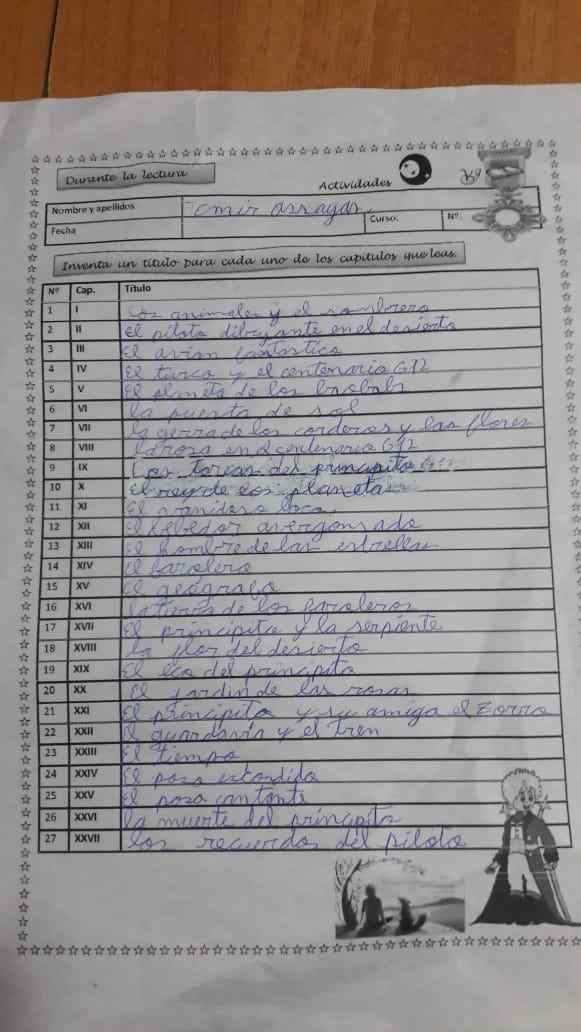 Durante la lectura
Actividades
Nombre y apellidos emir assayar
Curso: Nº
Fecha
Inventa un título para cada uno de los capítulos que leas.
Nº Cap. Título
1 I Los animales y el sombrero
2 II El piloto dibujante en el desierto
3 III El avion fantastico
4 IV El turco y el centenario G12
5 V El planeta de los baobabs
6 VI la puesta de sol
7 VII la gerra de los corderos y las flores
8 VIII la rosa en centenario G12
9 IX Las tareas del principito
10 X El rey de los planeta
11 XI El vanidoso loco
12 XII El bebedor avergonsado
13 XIII El hombre de las estrellas
14 XIV El farolero
15 XV El geógrafo
16 XVI la tierra de los faroleros
17 XVII El principito y la serpiente
18 XVIII la flor del desierto
19 XIX El eco del principito
20 XX El jardin de las rosas
21 XXI El principito y su amigo el zorro
22 XXII El guardavia y el tren
23 XXIII El tiempo
24 XXIV El poso escondido
25 XXV El poso cantante
26 XXVI la muerte del principito
27 XXVII los recuerdos del piloto